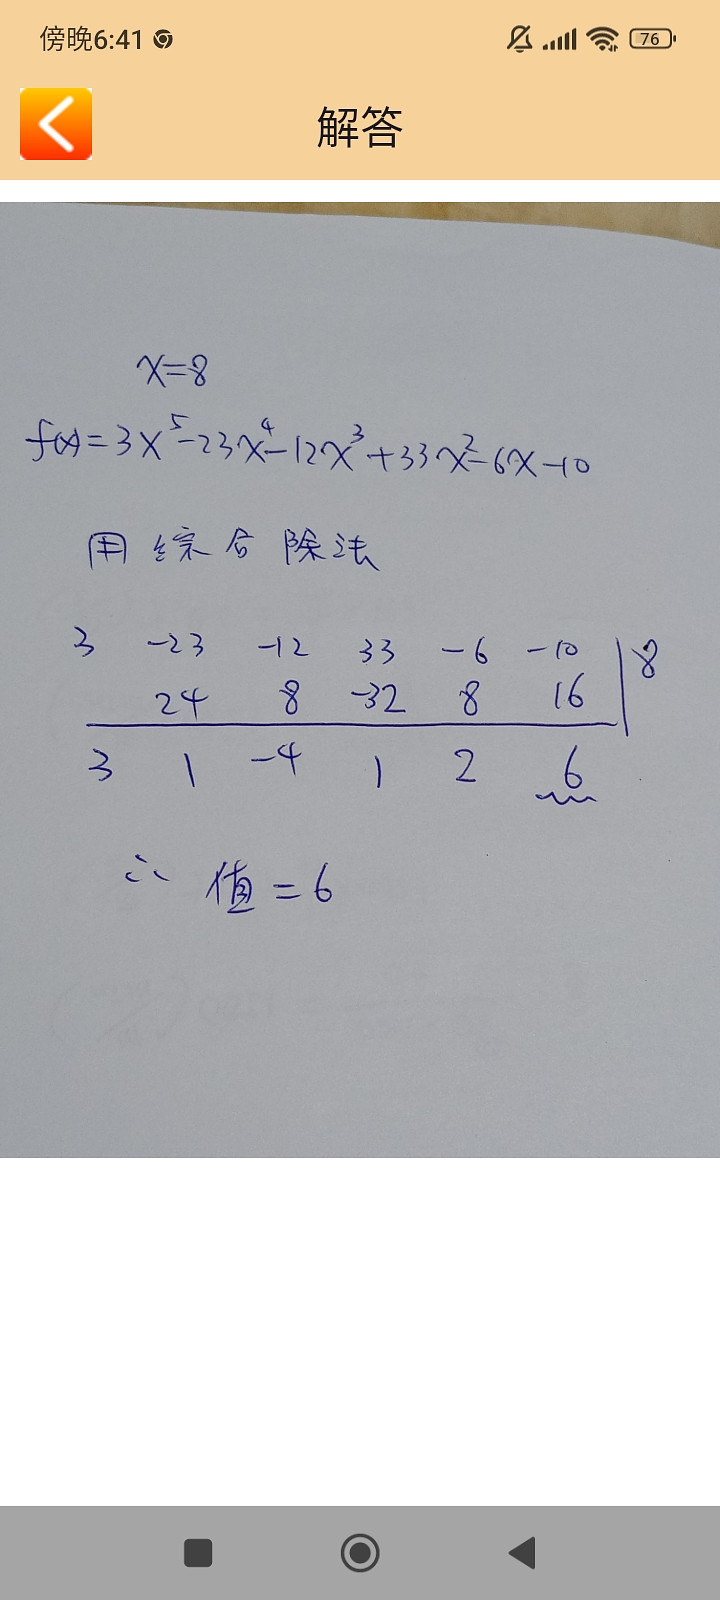 傍晚6:41
76
解答
x=8
f(x)=3x⁵-23x⁴-12x³+33x²-6x-10
用綜合除法
3 -23 -12 33 -6 -10 | 8
24 8 -32 8 16
3 1 -4 1 2 6
∴ 值=6